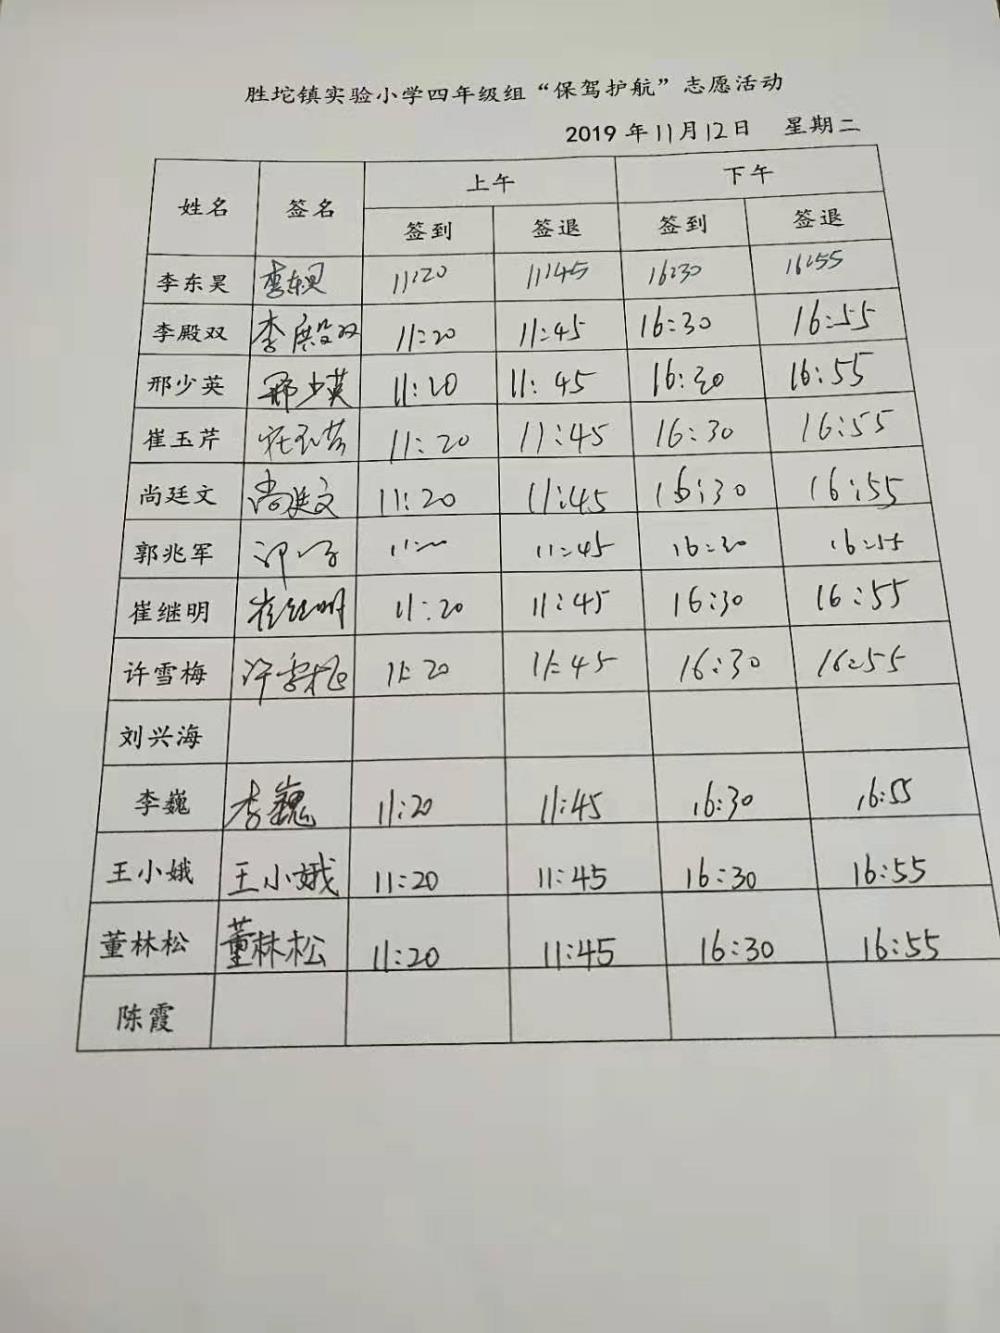 胜坨镇实验小学四年级组“保驾护航”志愿活动
2019 年 11月 12日 星期二
姓名 签名 上午 下午
签到 签退 签到 签退
李东昊 李东昊 11:20 11:45 16:30 16:55
李殿双 李殿双 11:20 11:45 16:30 16:55
邢少英 邢少英 11:20 11:45 16:30 16:55
崔玉芹 崔玉芹 11:20 11:45 16:30 16:55
尚廷文 尚廷文 11:20 11:45 16:30 16:55
郭兆军 11:45 16:30 16:55
崔继明 崔继明 11:20 11:45 16:30 16:55
许雪梅 许雪梅 11:20 11:45 16:30 16:55
刘兴海
李巍 李巍 11:20 11:45 16:30 16:55
王小娥 王小娥 11:20 11:45 16:30 16:55
董林松 董林松 11:20 11:45 16:30 16:55
陈霞